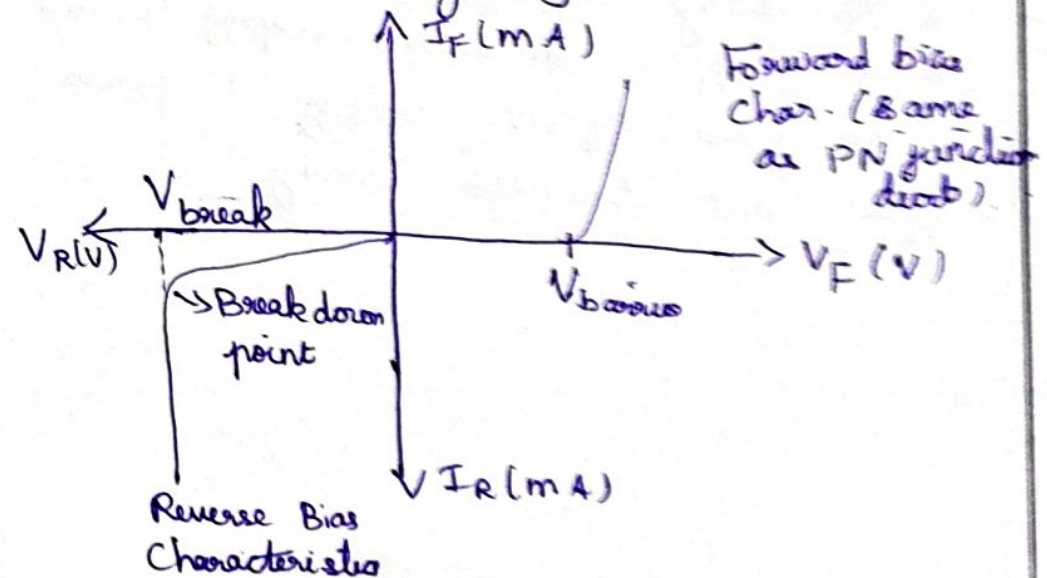 I_F (mA)
Forward bias
Char. (Same
as PN junction
diode)
V_break
V_R(V)
V_F (V)
V_barrier
Breakdown
point
I_R (mA)
Reverse Bias
Characteristics